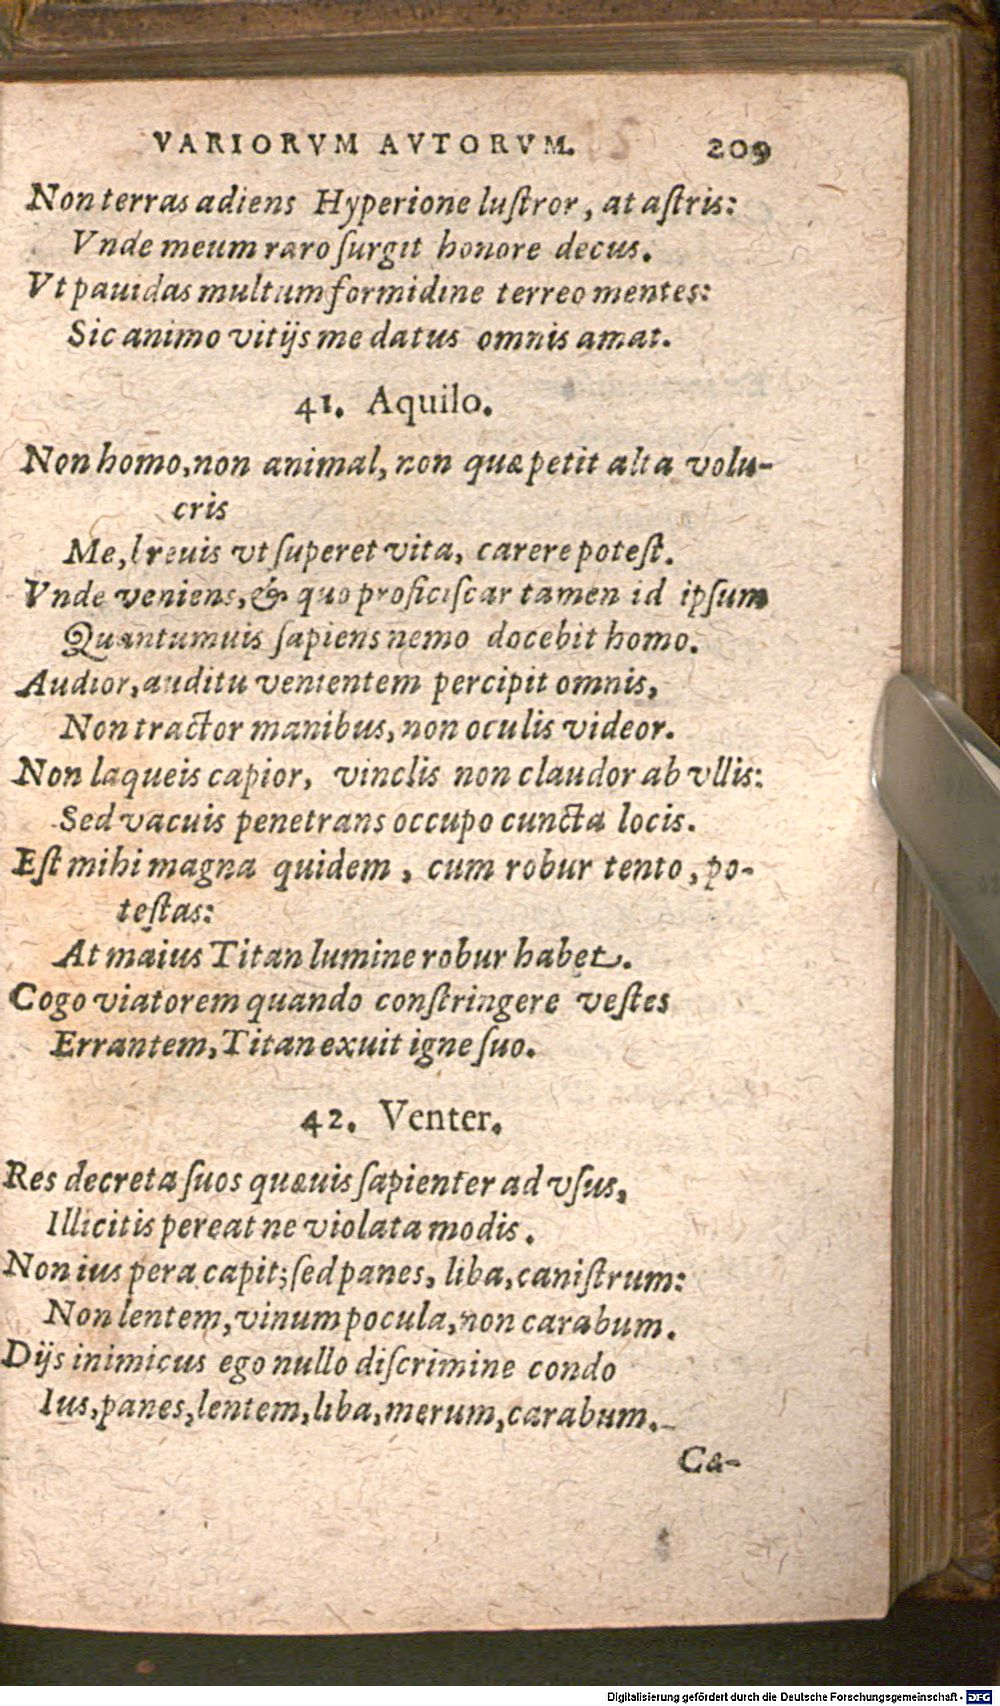 VARIORVM AVTORVM. 209
Non terras adiens Hyperione luſtror, at aſtris:
Vnde meum raro ſurgit honore decus.
Vt pauidas multum formidine terreo mentes:
Sic animo vitijs me datus omnis amat.
41. Aquilo.
Non homo, non animal, non quæ petit alta volu-
cris
Me, breuis vt ſuperet vita, carere poteſt.
Vnde veniens, & quo proficiſcar tamen id ipſum
Quantumuis ſapiens nemo docebit homo.
Audior, auditu venientem percipit omnis,
Non tractor manibus, non oculis videor.
Non laqueis capior, vinclis non claudor ab vllis:
Sed vacuis penetrans occupo cuncta locis.
Eſt mihi magna quidem, cum robur tento, po-
teſtas:
At maius Titan lumine robur habet.
Cogo viatorem quando conſtringere veſtes
Errantem, Titan exuit igne ſuo.
42. Venter.
Res decreta ſuos quæuis ſapienter ad vſus,
Illicitis pereat ne violata modis.
Non ius pera capit; ſed panes, liba, caniſtrum:
Non lentem, vinum pocula, non carabum.
Dijs inimicus ego nullo diſcrimine condo
Ius, panes, lentem, liba, merum, carabum.
Ca-
Digitalisierung gefördert durch die Deutsche Forschungsgemeinschaft - DFG